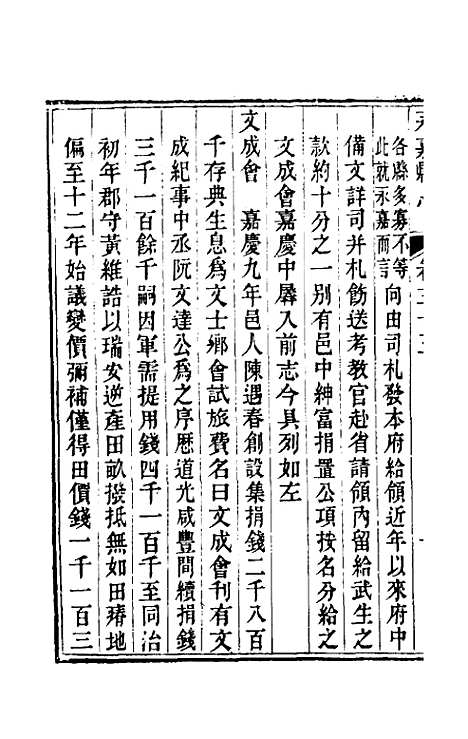 各縣多寡不等
此就永嘉而言
向由司札發本府給領近年以來府中
備文詳司并札飭送考教官赴省請領內留給武生之
款約十分之一別有邑中紳富捐置公項按名分給之
文成會嘉慶中羼入前志今具列如左
文成會 嘉慶九年邑人陳遇春創設集捐錢二千八百
千存典生息爲文士鄉會試旅費名曰文成會刊有文
成紀事中丞阮文達公爲之序歷道光咸豐間續捐錢
三千一百餘千嗣因軍需提用錢四千一百千至同治
初年郡守黃維誥以瑞安逆產田畝撥抵無如田瘠地
偏至十二年始議變價彌補僅得田價錢一千一百三